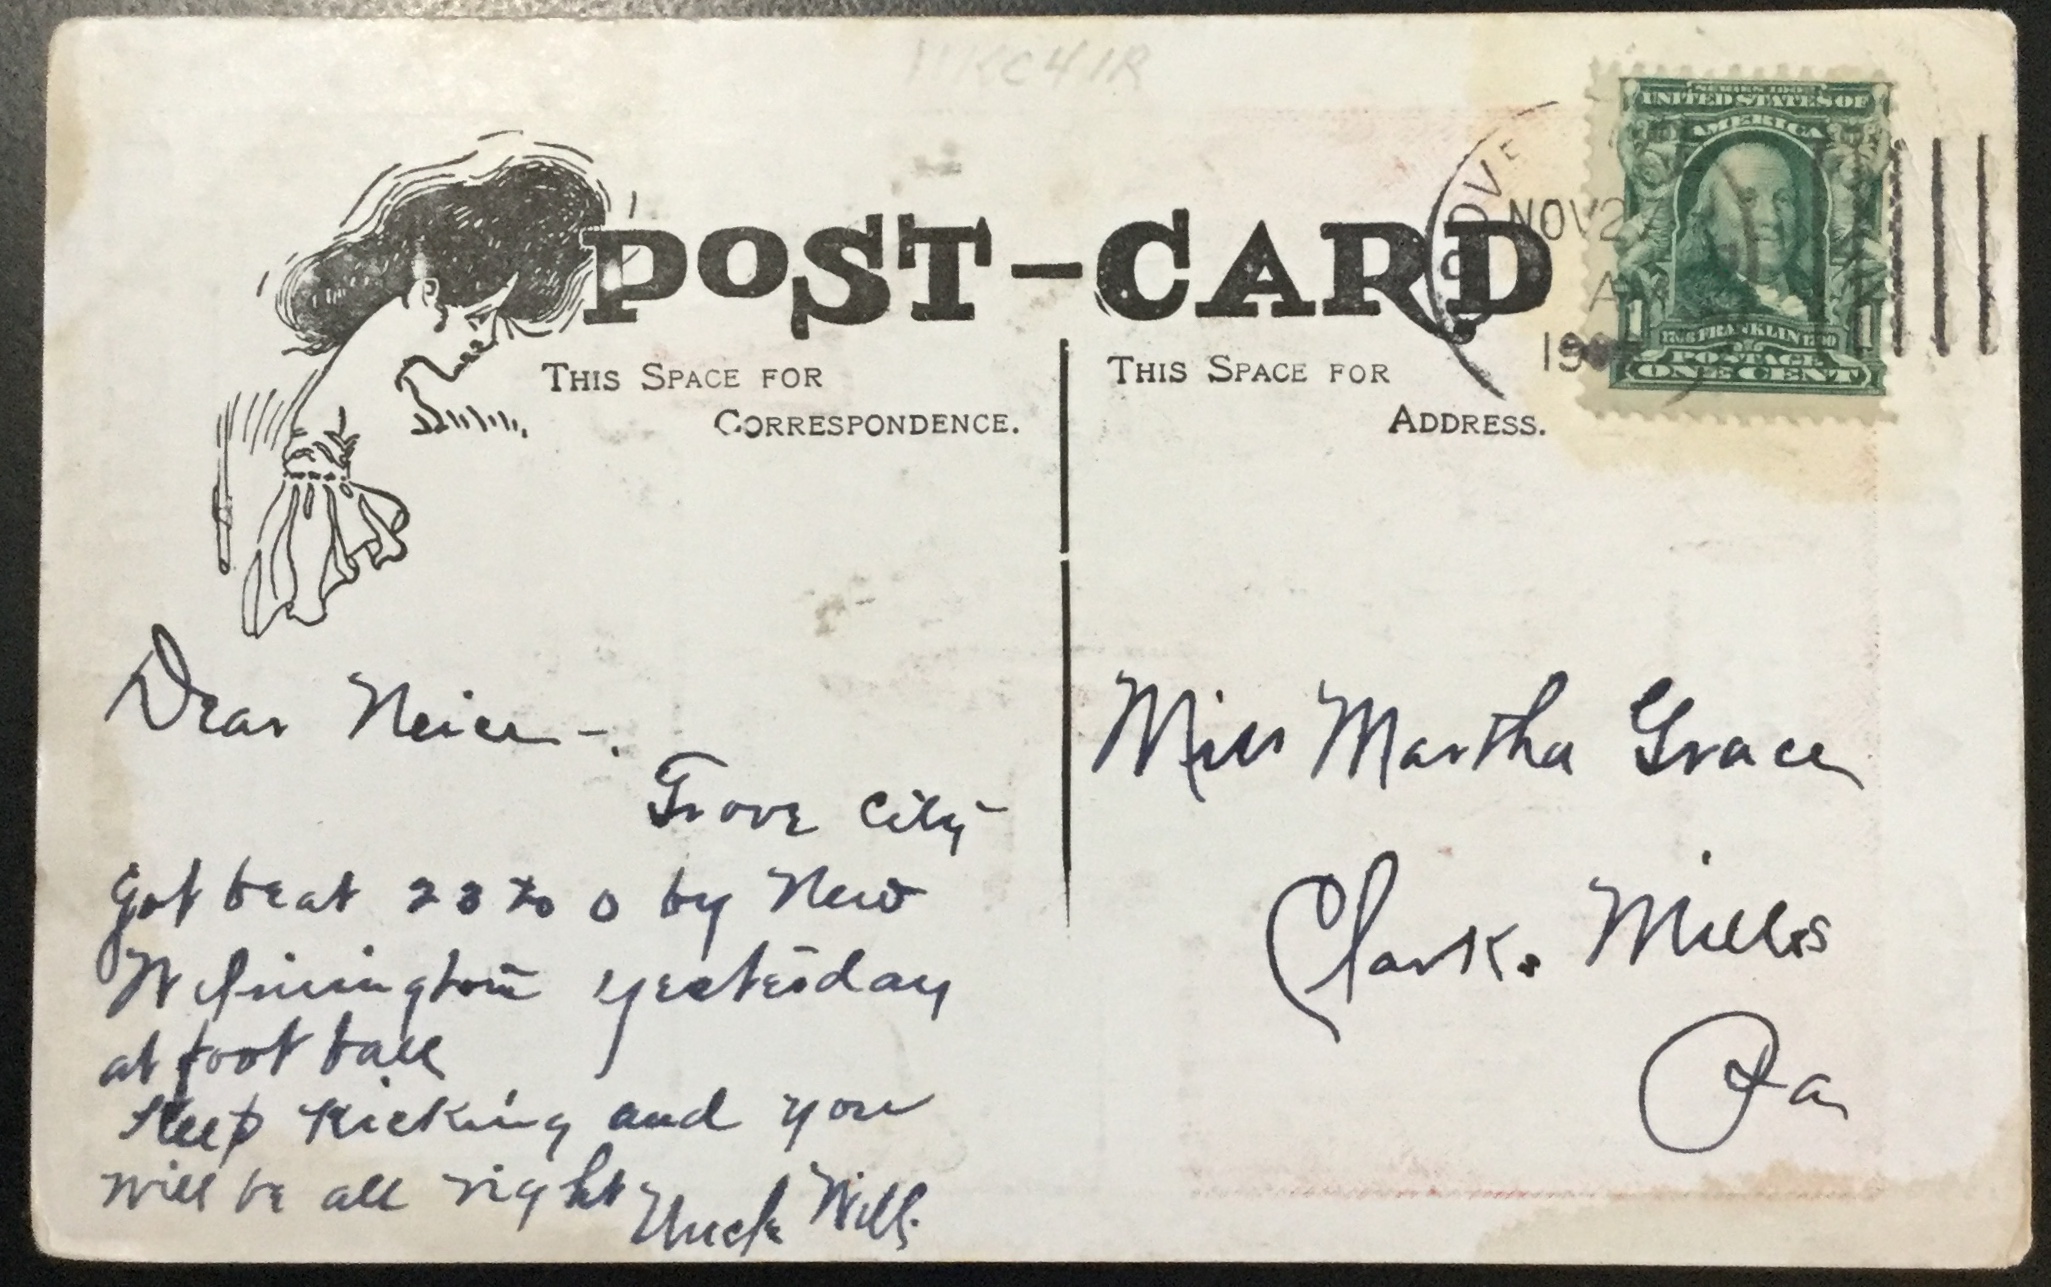 POST-CARD
THIS SPACE FOR
CORRESPONDENCE.
THIS SPACE FOR
ADDRESS.
NOV 2
AM
19
SERIES 1902
UNITED STATES OF
AMERICA
1706 FRANKLIN 1790
1 1
POSTAGE
ONE CENT
Dear Neice -.
Grove City
Got beat 23 to 0 by New
Wilmington yesterday
at foot ball
Keep Kicking and you
will be all right Uncle Will.
Miss Martha Grace
Clark. Mills
Pa